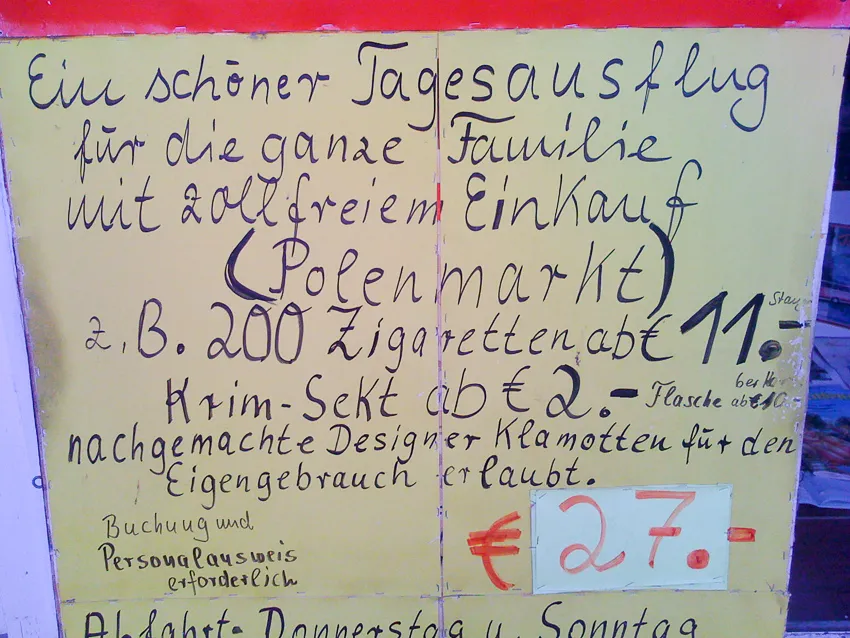 Ein schöner Tagesausflug
für die ganze Familie
mit zollfreiem Einkauf
(Polenmarkt)
z.B. 200 Zigaretten ab € 11.-
Krim-Sekt ab € 2.- Flasche
ab € 10.-
nachgemachte Designer Klamotten für den
Eigengebrauch erlaubt.
Buchung und
Personalausweis
erforderlich
€ 27.-
Abfahrt- Donnerstag u. Sonntag